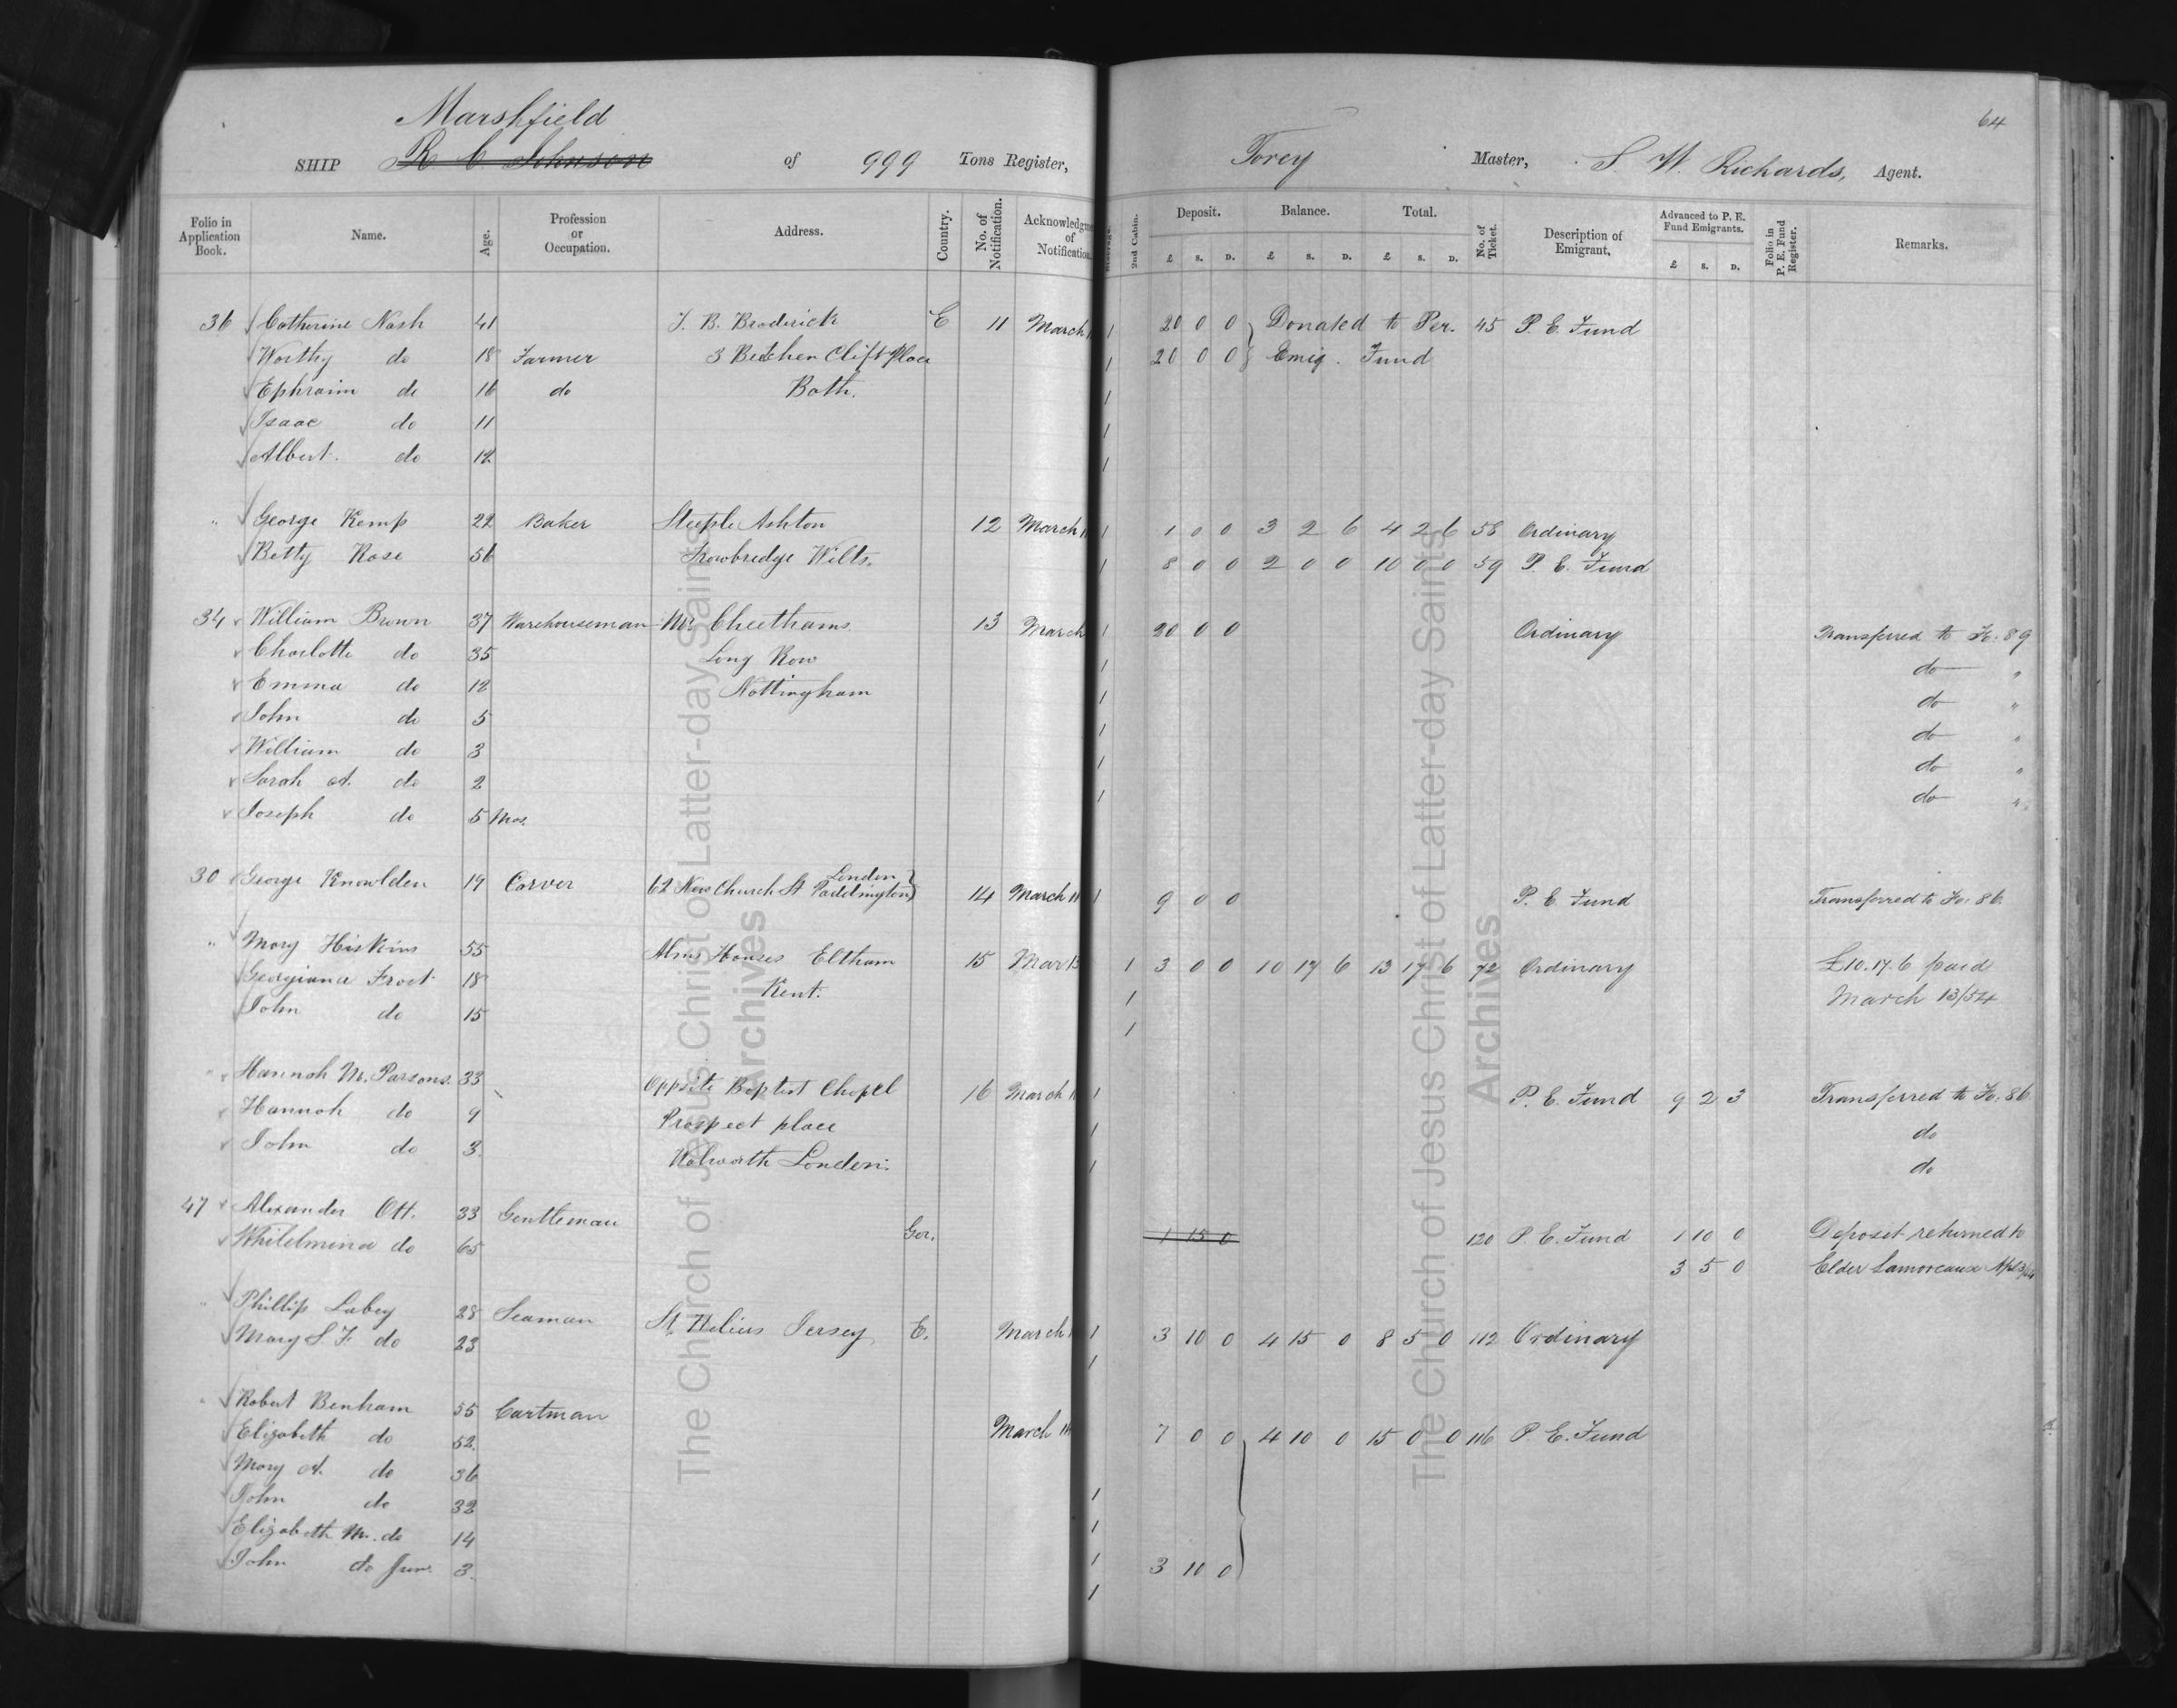 64
Marshfield
SHIP R. C. Johnson of 999 Tons Register, Torey Master, S. W. Richards, Agent.
Folio in Application Book. Name. Age. Profession or Occupation. Address. Country. No. of Notification. Acknowledgme of Notification. 2nd Cabin. Deposit. £ S. D. Balance. £ S. D. Total. £ S. D. No. of Ticket. Description of Emigrant. Advanced to P. E. Fund Emigrants. £ S. D. Folio in P. E. Fund Register. Remarks.
36 Catherine Nash 41 J. B. Broderick E 11 March 1 20 0 0 Donated to Per. 45 P. E. Fund
Worthy do 18 Farmer 3 Beechen Clift Place 1 20 0 0 Emig. Fund
Ephraim do 16 do Bath. 1
Isaac do 11 1
Albert. do 12 1
" George Kemp 22 Baker Steeple Ashton 12 March 1 1 0 0 3 2 6 4 2 6 58 Ordinary
Betty Rose 56 Trowbredge Wilts. 1 8 0 0 2 0 0 10 0 0 59 P. E. Fund
34 William Brown 37 Warehouseman Mr Cheethams. 13 March 1 20 0 0 Ordinary Transferred to Fo: 89
Charlotte do 35 Long Row 1 do "
Emma do 12 Nottingham 1 do "
John do 5 1 do "
William do 3 1 do "
Sarah A. do 2 1 do "
Joseph do 5 Mos.
30 George Knowlden 19 Carver 62 New Church St Paddington London 14 March 11 1 9 0 0 P. E. Fund Transferred to Fo: 86.
" Mary Hiskins 55 Alms Houses Eltham 15 Mar 13 1 3 0 0 10 17 6 13 17 6 72 Ordinary £10.17.6 paid
Georgiana Frost 18 Kent. 1 March 13/54
John do 15 1
" Hannah M. Parsons. 33 Oppsite Baptist Chapel 16 March 1 P. E. Fund 9 2 3 Transferred to Fo: 86
Hannah do 9 Prospect place 1 do
John do 3. Walworth London. 1 do
47 Alexander Ott. 33 Gentleman Ger. 1 15 0 120 P. E. Fund 1 10 0 Deposit returned to
Whilelmina do 65 3 5 0 Elder Lamoreaux
" Phillip Labey 28 Seaman St. Helius Jersey E. March 1 3 10 0 4 15 0 8 5 0 112 Ordinary
Mary S. F. do 23 1
" Robert Benham 55 Cartman March 7 0 0 4 10 0 15 0 0 116 P. E. Fund
Elizabeth do 52.
Mary A. do 36
John do 32 1
Elizabeth M. do 14 1
John do Junr. 3. 1 3 10 0
1
The Church of Jesus Christ of Latter-day Saints
Archives
The Church of Jesus Christ of Latter-day Saints
Archives